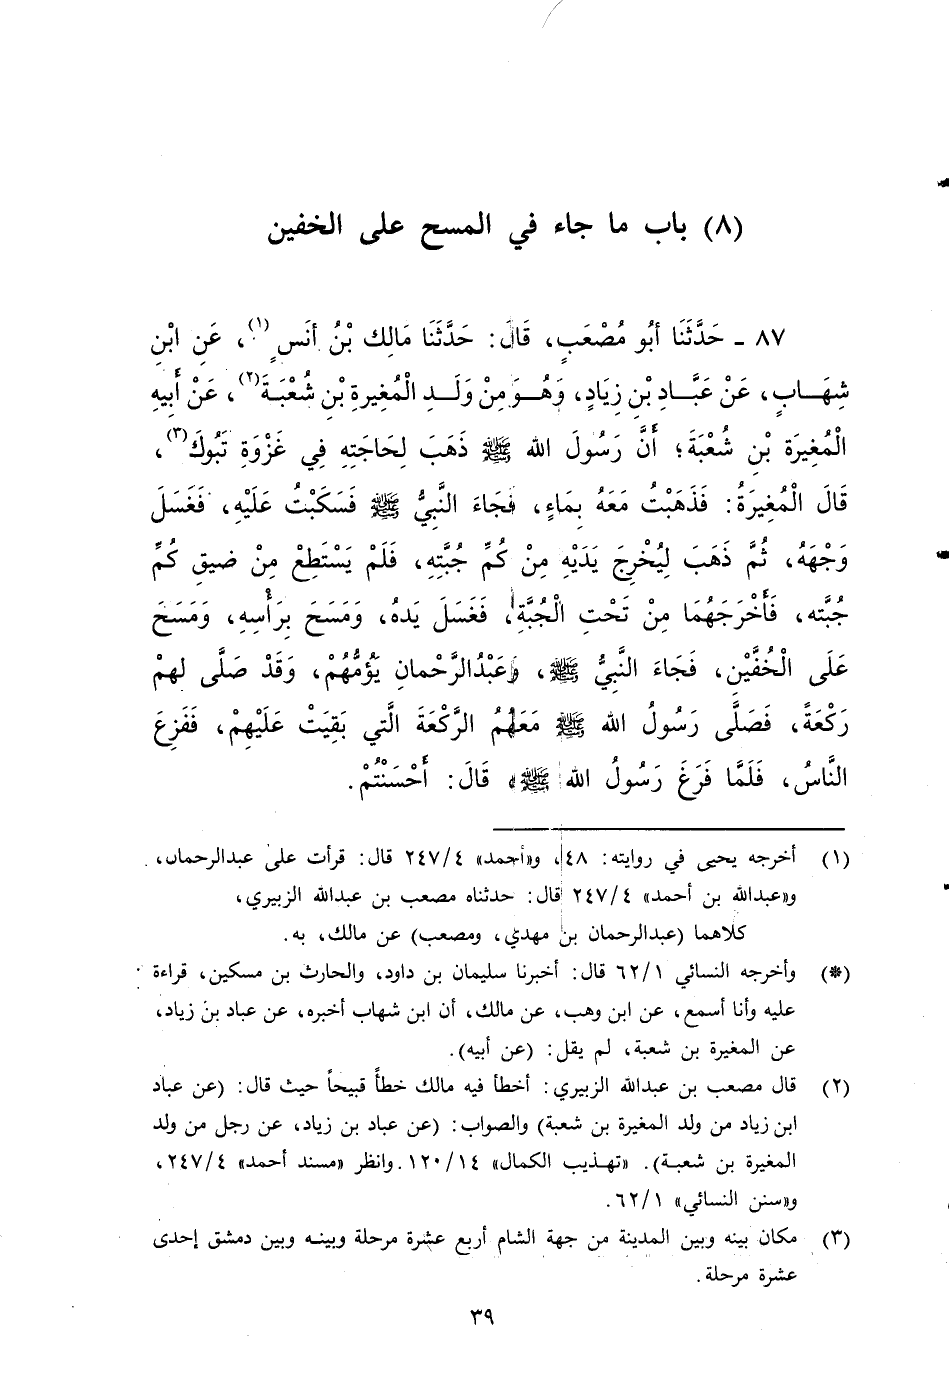 (٨) باب ما جاء في المسح على الخفين
٨٧ ـ حَدَّثَنَا أبُو مُصْعَبٍ، قَالَ: حَدَّثَنَا مَالِك بْنُ أنَسٍ(١)، عَنِ ابْنِ
شِهَابٍ، عَنْ عَبَّادِ بْنِ زِيَادٍ، وَهُوَ مِنْ وَلَدِ الْمُغِيرةِ بْنِ شُعْبَةَ(٢)، عَنْ أَبِيهِ
الْمُغِيرَةَ بْنِ شُعْبَةَ؛ أَنَّ رَسُولَ الله ﷺ ذَهَبَ لِحَاجَتِهِ فِي غَزْوَةِ تَبُوكَ(٣)،
قَالَ الْمُغِيرَةُ: فَذَهَبْتُ مَعَهُ بِمَاءٍ، فَجَاءَ النَّبِيُّ ﷺ فَسَكَبْتُ عَلَيْهِ، فَغَسَلَ
وَجْهَهُ، ثُمَّ ذَهَبَ لِيُخْرِجَ يَدَيْهِ مِنْ كُمِّ جُبَّتِهِ، فَلَمْ يَسْتَطِعْ مِنْ ضيقِ كُمِّ
جُبَّته، فَأَخْرَجَهُمَا مِنْ تَحْتِ الْجُبَّةِ، فَغَسَلَ يَدهُ، وَمَسَحَ بِرَأْسِهِ، وَمَسَحَ
عَلَى الْخُفَّيْنِ، فَجَاءَ النَّبِيُّ ﷺ، وَعَبْدُالرَّحْمانِ يَؤُمُّهُمْ، وَقَدْ صَلَّى لهمْ
رَكْعَةً، فَصَلَّى رَسُولُ الله ﷺ مَعَهُمُ الرَّكْعَةَ الَّتي بَقِيَتْ عَلَيْهِمْ، فَفَزِعَ
النَّاسُ، فَلَمَّا فَرَغَ رَسُولُ الله ﷺ، قَالَ: أَحْسَنْتُمْ.
(١) أخرجه يحيى في روايته: ٤٨، و«أحمد» ٢٤٧/٤ قال: قرأت على عبدالرحمان،
و«عبدالله بن أحمد» ٢٤٧/٤ قال: حدثناه مصعب بن عبدالله الزبيري،
كلاهما (عبدالرحمان بن مهدي، ومصعب) عن مالك، به.
(*) وأخرجه النسائي ٦٢/١ قال: أخبرنا سليمان بن داود، والحارث بن مسكين، قراءة
عليه وأنا أسمع، عن ابن وهب، عن مالك، أن ابن شهاب أخبره، عن عباد بن زياد،
عن المغيرة بن شعبة، لم يقل: (عن أبيه).
(٢) قال مصعب بن عبدالله الزبيري: أخطأ فيه مالك خطأً قبيحاً حيث قال: (عن عباد
ابن زياد من ولد المغيرة بن شعبة) والصواب: (عن عباد بن زياد، عن رجل من ولد
المغيرة بن شعبة). «تهذيب الكمال» ١٢٠/١٤. وانظر «مسند أحمد» ٢٤٧/٤،
و«سنن النسائي» ٦٢/١.
(٣) مكان بينه وبين المدينة من جهة الشام أربع عشرة مرحلة وبينه وبين دمشق إحدى
عشرة مرحلة.
٣٩